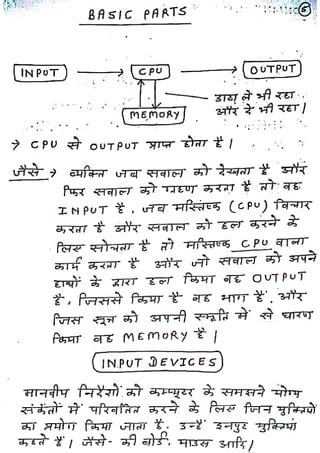 BASIC PARTS
6
INPUT CPU OUTPUT
डाटा ले भी रहा
और दे भी रहा।
MEMORY
→ CPU से OUTPUT प्राप्त होता है।
जैसे → व्यक्ति जब सवाल को देखता है और
फिर सवाल को ग्रहण करता है तो वह
INPUT है, जब मस्तिष्क (CPU) विचार
करता है और सवाल को हल करने के
लिए सोचता है तो मस्तिष्क CPU वाला
कार्य करता है और जो सवाल को अपने
हाथों के द्वारा हल किया वह OUTPUT
है, जिससे किया है वह भाग है, और
जिस सूत्र को अपनी स्मृति में से धारण
किया वह MEMORY है।
INPUT DEVICES
मानवीय निर्देशों को कम्प्यूटर के समझने योग्य
संकेतों में परिवर्तित करने के लिए जिन युक्तियों
का प्रयोग किया जाता है, उन्हें इनपुट युक्तियां
कहते हैं। जैसे- की बोर्ड, माउस आदि।